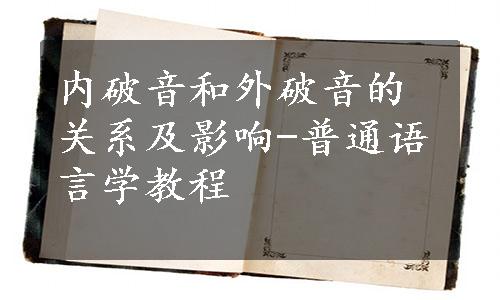 内破音和外破音的
关系及影响-普通语
言学教程